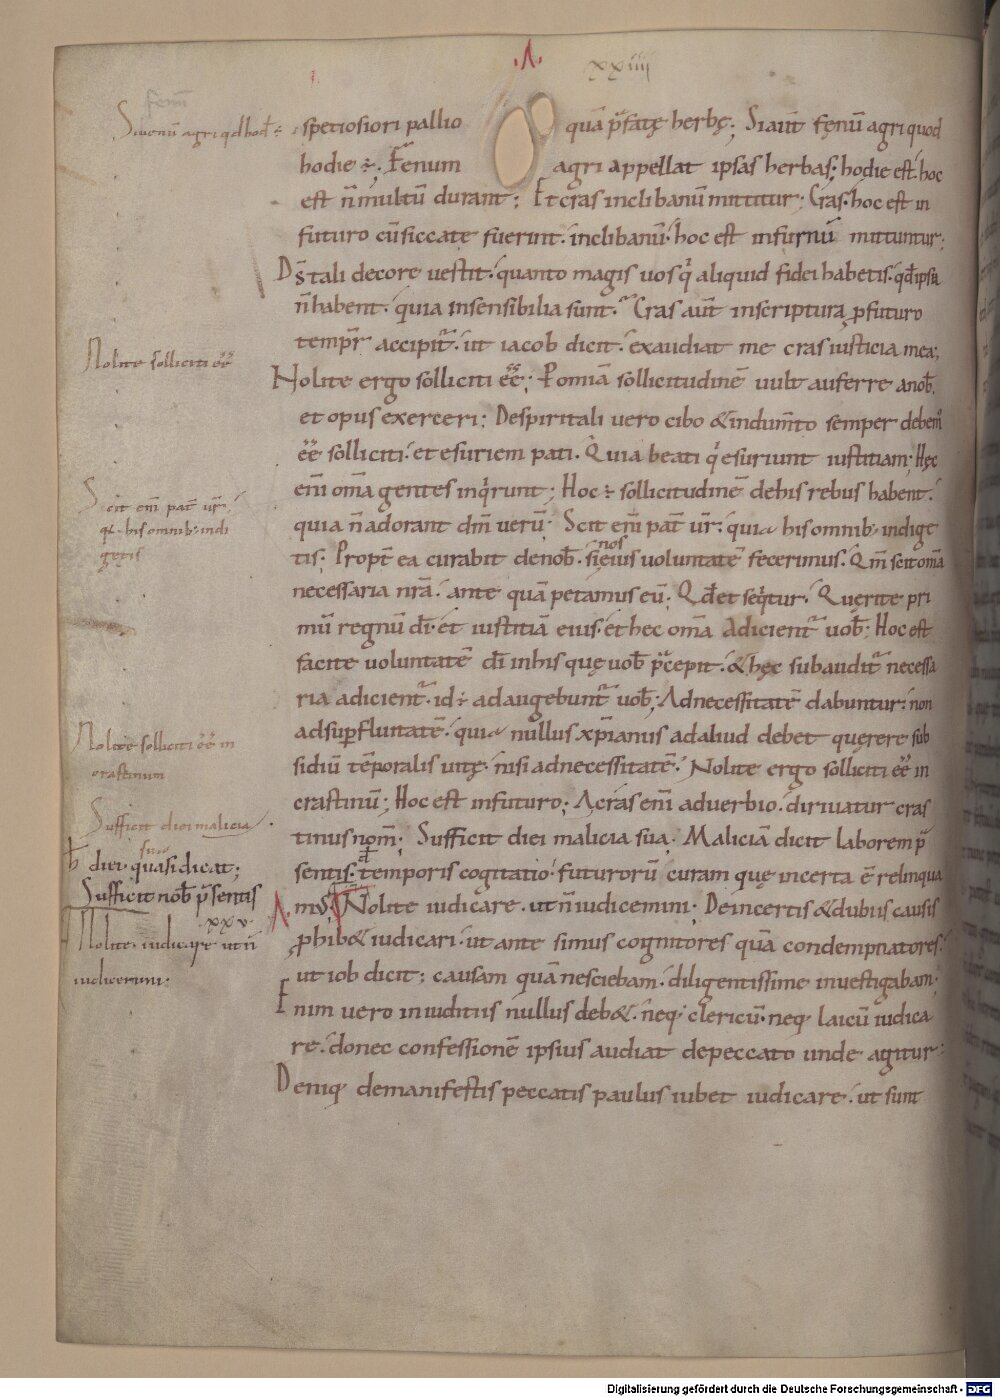 .A.
xxiiii
spetiosiori pallio quā p̄fatę herbę; Si aūt fęnū agri quod
hodie ÷; Fenum agri appellat ipsas herbas; hodie est. hoc
est n̄ multū durant; Et cras in clibanū mittitur; Cras. hoc est in
futuro cū siccate fuerint. in clibanū. hoc est in furnū mittuntur;
D̄s tali decore uestit. quanto magis uos q' aliquid fidei habetis. qd̄ ipsa
n̄ habent. quia insensibilia sunt. Cras aūt in scriptura p futuro
tempr̄ accipit'. ut iacob dicit. exaudiat me cras iusticia mea;
Nolite ergo solliciti ēē; Pomiā sollicitudinē uult auferre a nob̄.
et opus exerceri; De spiritali uero cibo & indumt̄o semper debem'
ēē solliciti. et esuriem pati. Quia beati q' esuriunt iustitiam; Hęc
em̄ om̄a gentes inq'runt; Hoc ÷ sollicitudinē de his rebus habent.
quia n̄ adorant dm̄ uerū; Scit em̄ pat̄ ur̄. quia his omnib. indige
tis; Propt̄ ea curabit de nob̄. si nos eius uoluntatē fecerimus. Qm̄ scit om̄a
necessaria nr̄a. ante quā petamus eū; Qd̄ et seq'tur. Querite pri
mū regnū dī. et iustitiā eius. et hec om̄a adicient' uob̄; Hoc est
facite uoluntatē dī in his quę uob̄ p̄cepit. & hęc subaudit' necessa
ria adicient'. id ÷ adaugebunt' uob̄; Ad necessitatē dabuntur. non
ad supfluitatē. quia nullus xp̄ianus ad aliud debet quęrere sub
sidiū tēporalis uitę. nisi ad necessitatē. Nolite ergo solliciti ēē in
crastinū; Hoc est in futuro; A cras em̄ aduerbio. diriuatur cras
tinus nom̄; Sufficit diei malicia sua. Maliciā dicit laborem p̄
sentis temporis cogitatio. futurorū curam quę incerta ē relinqua
m'. Nolite iudicare. ut n̄ iudicemini. De incertis & dubiis causis
phib& iudicari. ut ante simus cognitores quā condempnatores.
ut iob dicit; causam quā nesciebam. diligentissime inuestigabam;
Enim uero in iuditiis nullus deb&. neq; clericū. neq; laicū iudica
re. donec confessionē ipsius audiat de peccato unde agitur;
Deniq; de manifestis peccatis paulus iubet iudicare. ut sunt
fenū
Si uenū agri qd hod ÷
Nolite solliciti ēē
Scit em̄ pat̄ ur̄.
q his omnib. indi
gętis
Nolite solliciti ēē in
crastinum
Sufficit diei malicia
sua
diei. quasi dicat;
Sufficit nob̄ p̄sentis
xxv.
Nolite iudicare ut n̄
iudicemini.
Digitalisierung gefördert durch die Deutsche Forschungsgemeinschaft - DFG